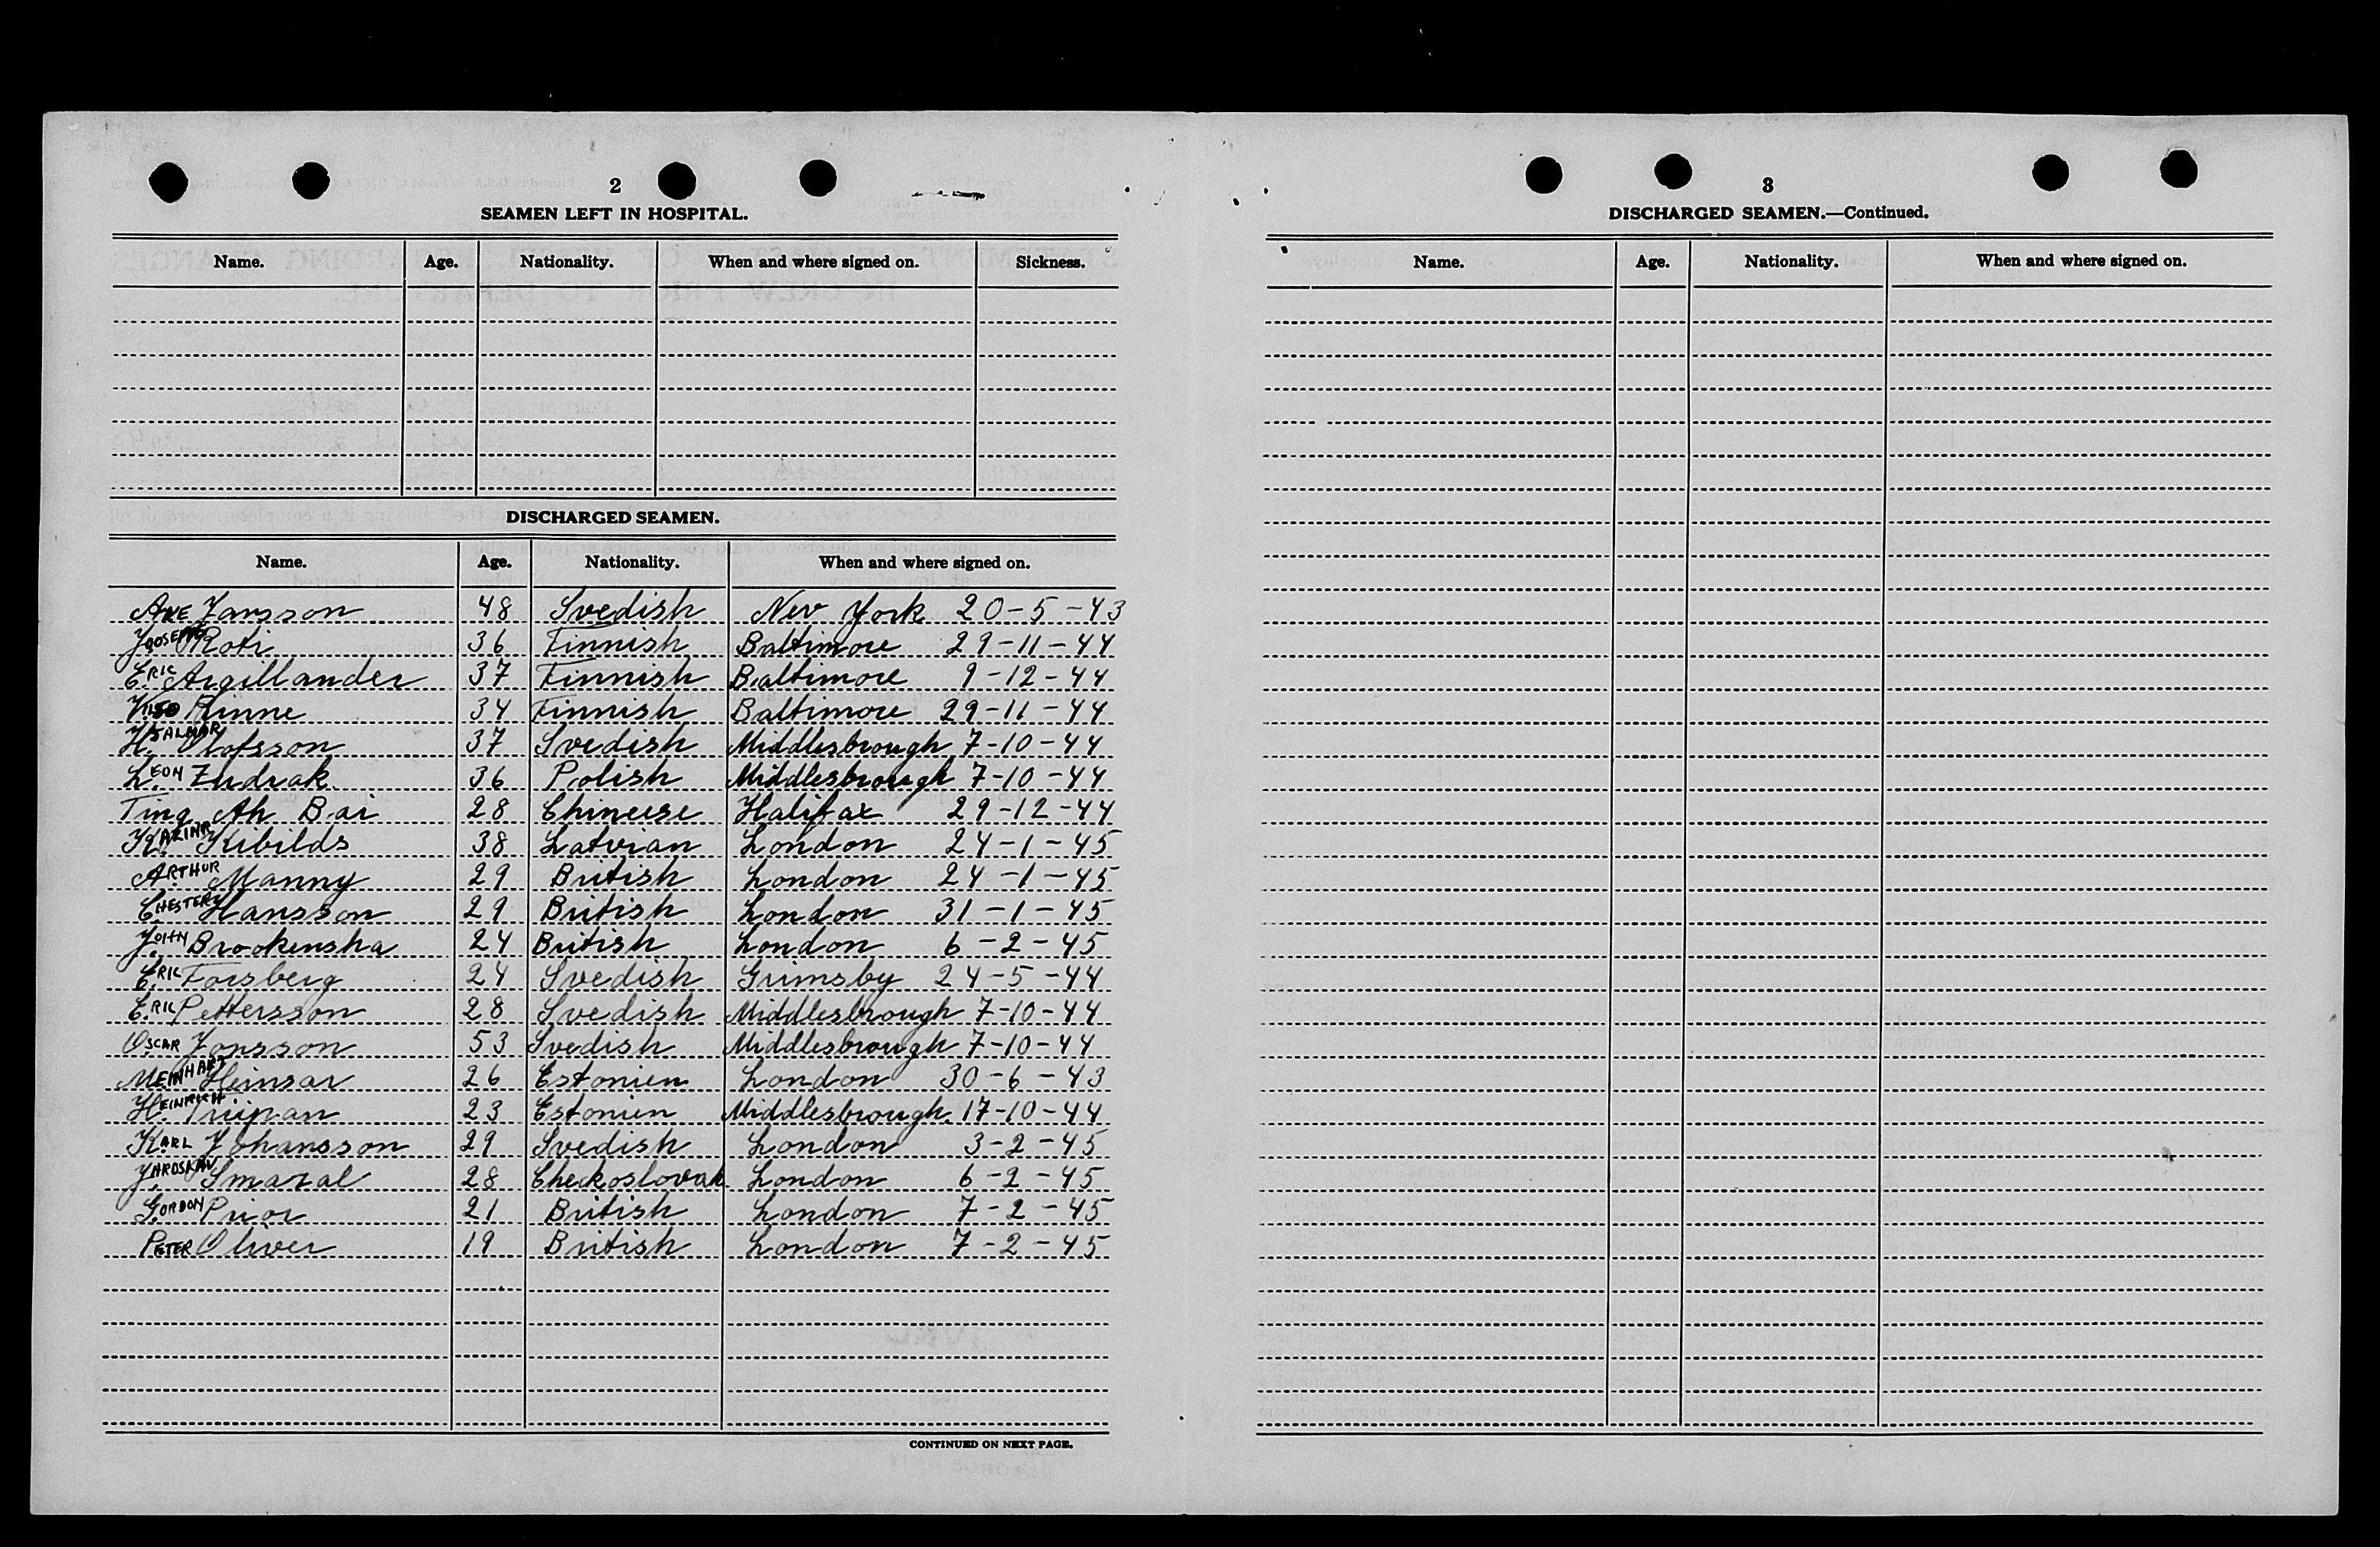 2
SEAMEN LEFT IN HOSPITAL.
Name. Age. Nationality. When and where signed on. Sickness.
DISCHARGED SEAMEN.
Name. Age. Nationality. When and where signed on.
Jansson 48 Svedish Nev York 20-5-43
Roti 36 Finnish Baltimore 29-11-44
ERIC Argillander 37 Finnish Baltimore 9-12-44
Rinne 34 Finnish Baltimore 29-11-44
HJALMAR Olofsson 37 Svedish Middlesbrough 7-10-44
LEON Zudrak 36 Polish Middlesbrough 7-10-44
Ting Ah Bai 28 Chineese Halifax 29-12-44
Kibilds 38 Latvian London 24-1-45
ARTHUR Manny 29 British London 24-1-45
CHESTER Hansson 29 British London 31-1-45
JOHN Brookensha 24 British London 6-2-45
ERIC Forsberg 24 Svedish Grimsby 24-5-44
ERIC Pettersson 28 Svedish Middlesbrough 7-10-44
OSCAR Jonsson 53 Svedish Middlesbrough 7-10-44
Heinsar 26 Estonien London 30-6-43
HEINRICH 23 Estonien Middlesbrough. 17-10-44
KARL Johansson 29 Svedish London 3-2-45
Smazal 28 Chekoslovak London 6-2-45
GORDON Prior 21 British London 7-2-45
PETER Oliver 19 British London 7-2-45
CONTINUED ON NEXT PAGE.
3
DISCHARGED SEAMEN.—Continued.
Name. Age. Nationality. When and where signed on.